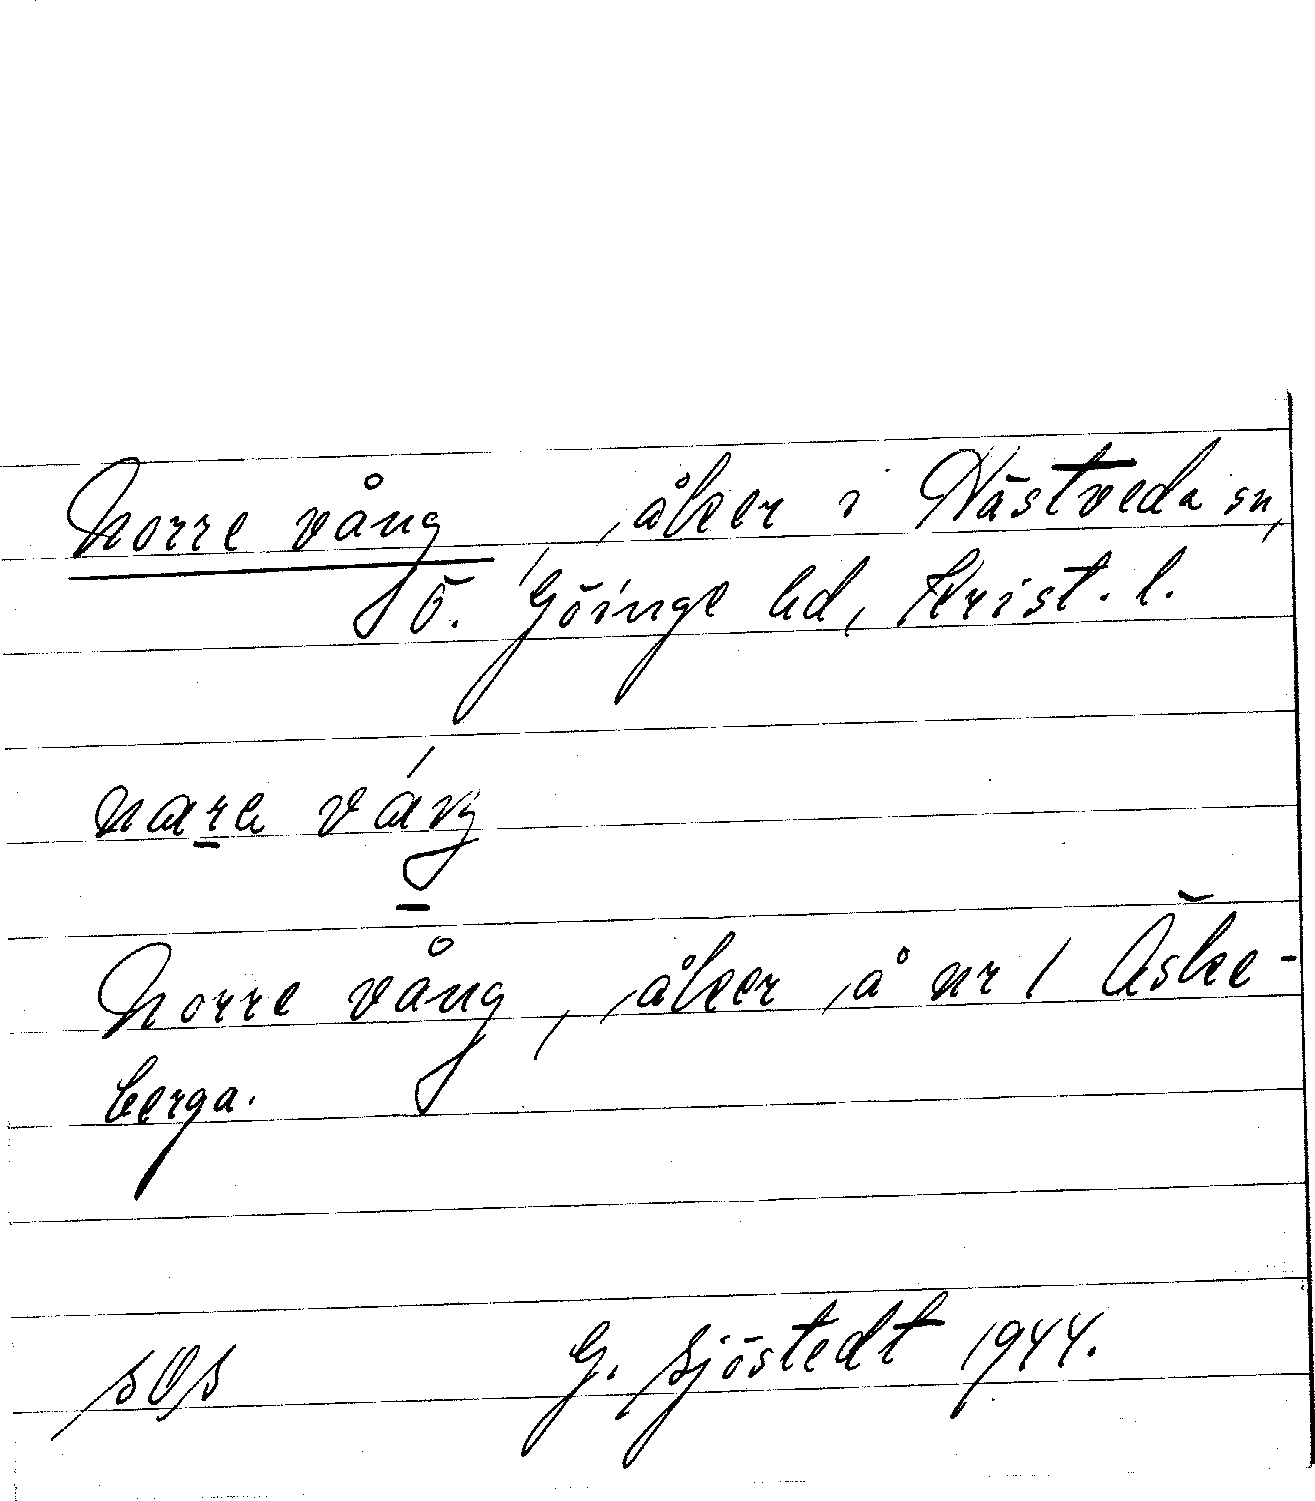 Norre vång, åker i Hästveda sn,
Ö. Göinge hd, Krist. l.
nara váŋ
Norre vång, åker å nr 1 Aske-
berga.
SOS G. Sjöstedt 1944.